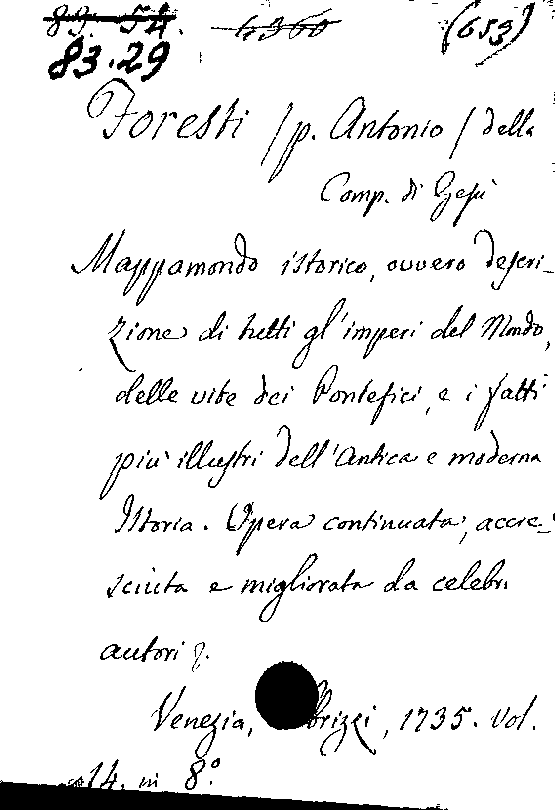 89. 54. 4360 (653)
83.29
Foresti /p. Antonio/ della
Comp. di Gesù
Mappamondo istorico, ovvero descri-
zione di tutti gl'imperi del Mondo,
delle vite dei Pontefici, e i fatti
più illustri dell'Antica e moderna
Istoria. Opera continuata, accre-
sciuta e migliorata da celebri
autori
Venezia, brizzi, 1735. Vol.
14. in 8.º